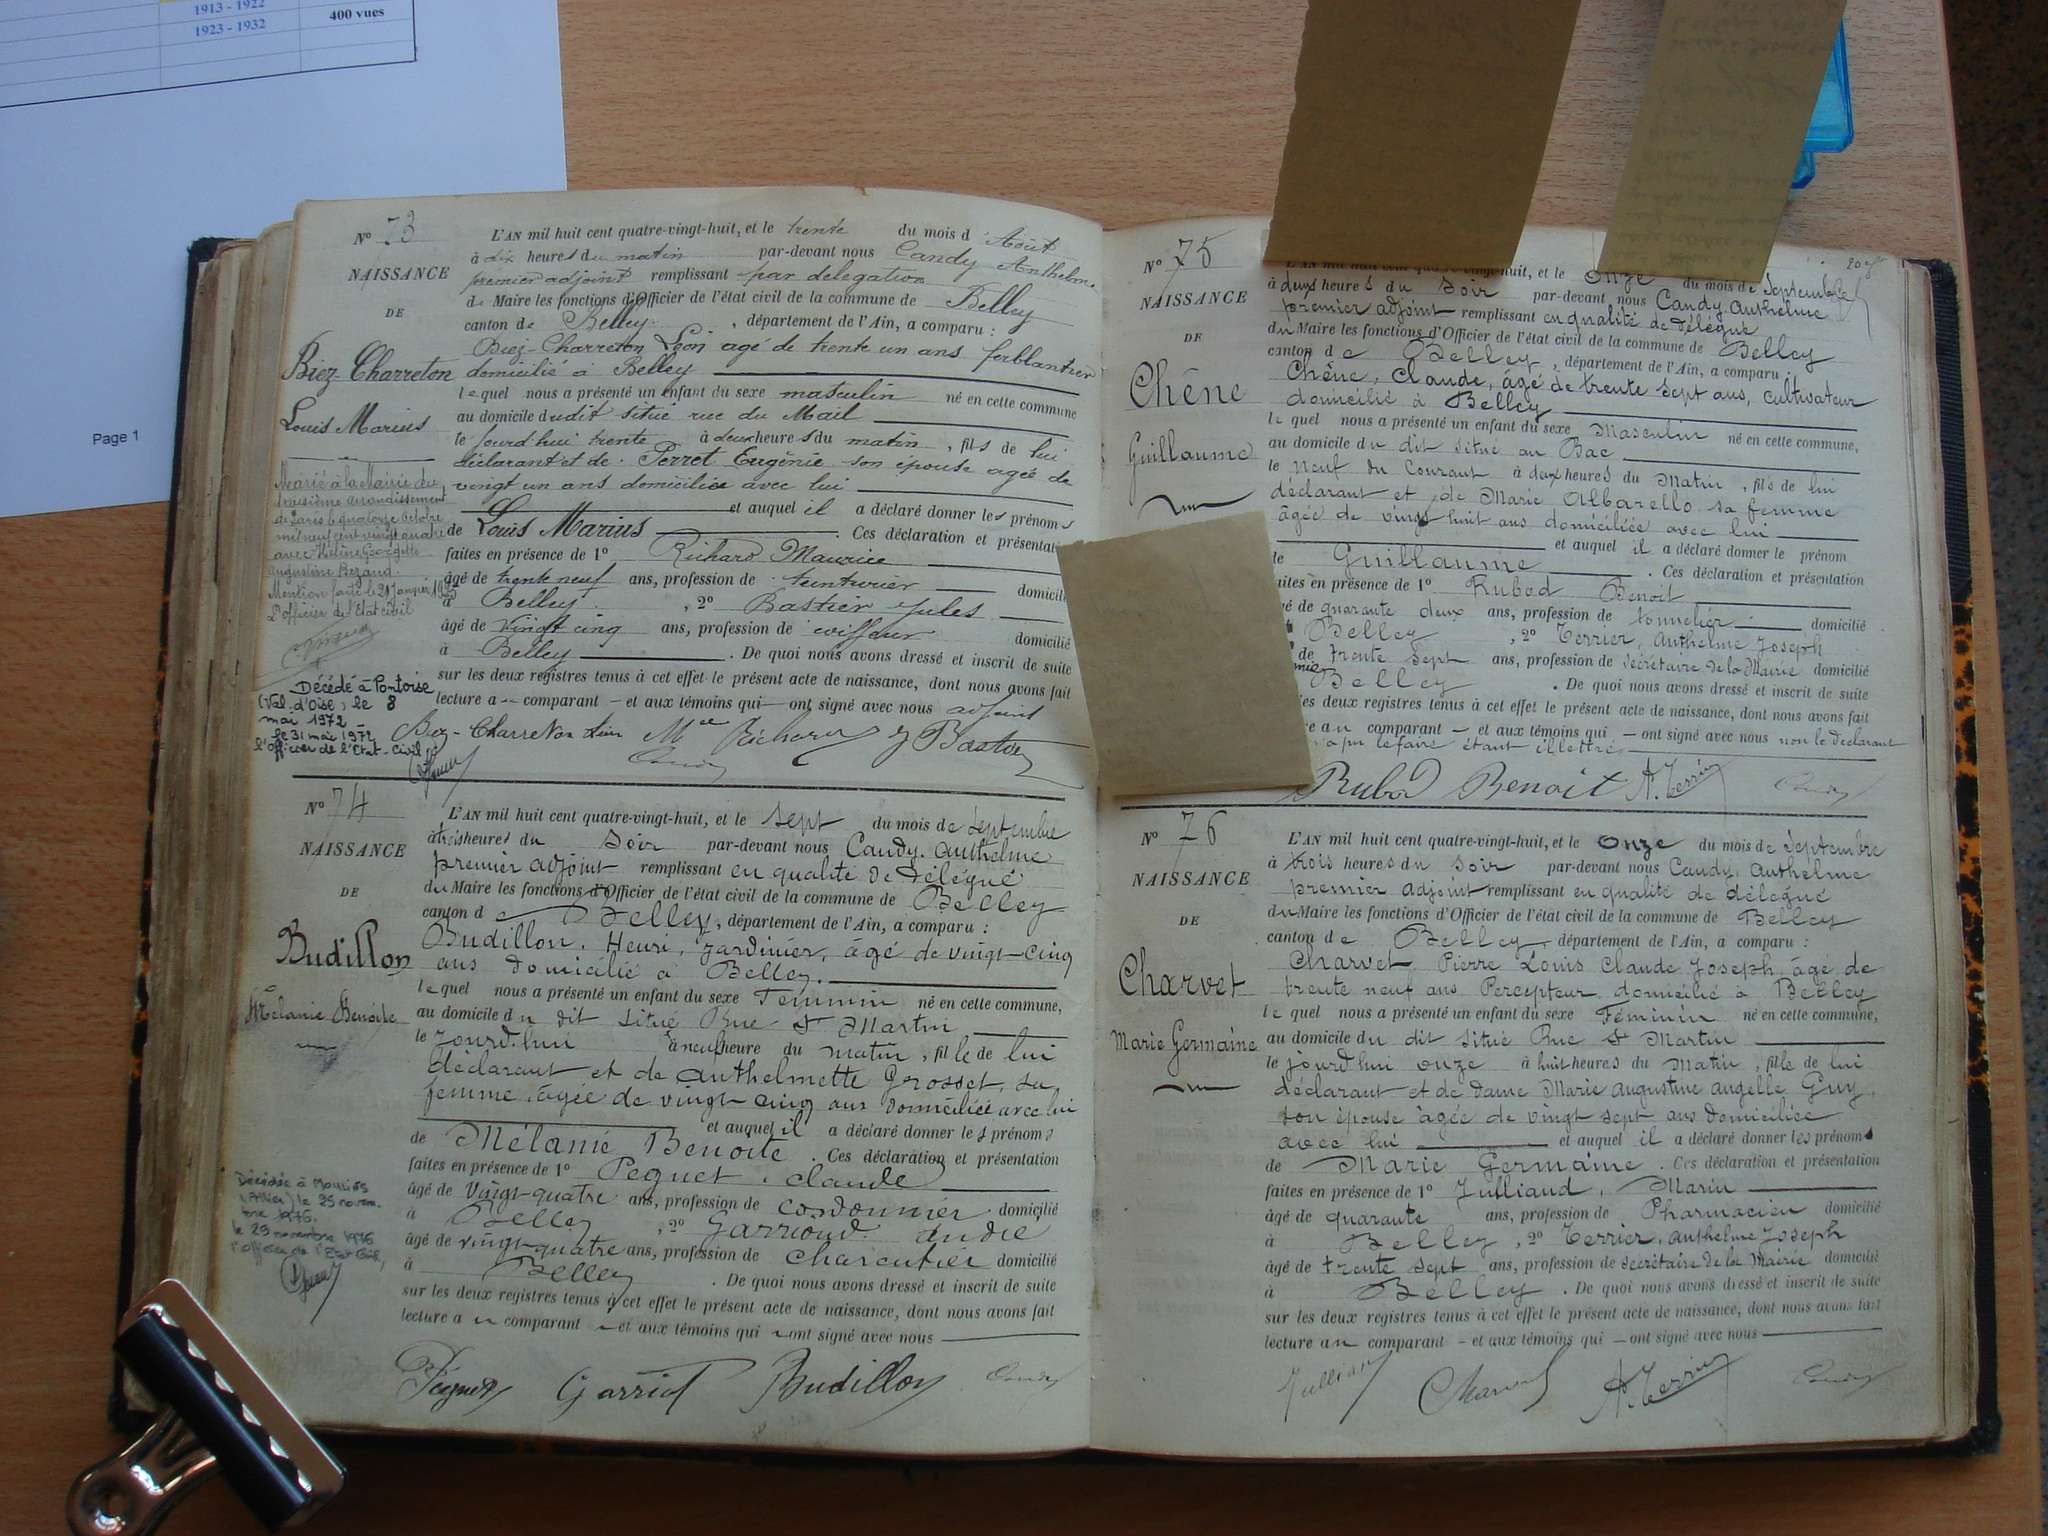 1913 - 1922
1923 - 1932
400 vues
Page 1
N° 73
NAISSANCE
DE
Biez-Charreton
Louis Marius
Marié à la Mairie du
troisième arrondissement
de Paris le quatorze Octobre
mil neuf cent vingt quatre
avec Hélène Georgette
Augustine Bezaud.
Mention faite le 21 Janvier 1925
L'officier de l'Etat civil
Décédé à Pontoise
(Val d'Oise) le 8
mai 1972
le 31 mai 1972
l'Officier de l'Etat-Civil
L'AN mil huit cent quatre-vingt-huit, et le trente du mois d'Août
à dix heures du matin par-devant nous Candy Anthelme
premier adjoint remplissant par délégation
de Maire les fonctions d'Officier de l'état civil de la commune de Belley
canton de Belley, département de l'Ain, a comparu :
Biez-Charreton Léon agé de trente un ans ferblantier
domicilié à Belley
lequel nous a présenté un enfant du sexe masculin né en cette commune
au domicile dudit situé rue du Mail
le jourd'hui trente à deux heures du matin, fils de lui
déclarant et de Perret Eugénie son épouse agée de
vingt un ans domiciliée avec lui
et auquel il a déclaré donner les prénoms
de Louis Marius. Ces déclaration et présentation
faites en présence de 1° Richard Maurice
âgé de trente neuf ans, profession de teinturier domicilié
à Belley, 2° Bastier Jules
âgé de vingt cinq ans, profession de coiffeur domicilié
à Belley. De quoi nous avons dressé et inscrit de suite
sur les deux registres tenus à cet effet le présent acte de naissance, dont nous avons fait
lecture au comparant et aux témoins qui ont signé avec nous adjoint
Biez-Charreton Léon Mce Richard J Bastier
Candy
N° 74
NAISSANCE
DE
Budillon
Mélanie Benoîte
Décédée à Moulins
(Allier) le 25 novem-
bre 1976.
le 29 novembre 1976
l'officier de l'Etat Civil,
L'AN mil huit cent quatre-vingt-huit, et le sept du mois de Septembre
à trois heures du Soir par-devant nous Candy, Anthelme
premier adjoint remplissant en qualité de délégué
du Maire les fonctions d'Officier de l'état civil de la commune de Belley
canton de Belley, département de l'Ain, a comparu :
Budillon, Henri, jardinier, âgé de vingt-cinq
ans domicilié à Belley.
lequel nous a présenté un enfant du sexe Féminin né en cette commune,
au domicile du dit situé Rue St Martin
le jourd'hui à neuf heure du matin, fille de lui
déclarant et de Anthelmette Grosset, sa
femme, âgée de vingt-cinq ans domiciliée avec lui
et auquel il a déclaré donner les prénoms
de Mélanie Benoîte. Ces déclaration et présentation
faites en présence de 1° Peguet, Claude
âgé de Vingt-quatre ans, profession de cordonnier domicilié
à Belley, 2° Garrioud André
âgé de vingt-quatre ans, profession de charcutier domicilié
à Belley. De quoi nous avons dressé et inscrit de suite
sur les deux registres tenus à cet effet le présent acte de naissance, dont nous avons fait
lecture au comparant et aux témoins qui ont signé avec nous
Peguet Budillon Candy
N° 75
NAISSANCE
DE
Chêne
Guillaume
L'AN mil huit cent quatre-vingt-huit, et le Onze du mois de Septembre
à deux heures du Soir par-devant nous Candy, Anthelme
premier adjoint remplissant en qualité de délégué
du Maire les fonctions d'Officier de l'état civil de la commune de Belley
canton de Belley, département de l'Ain, a comparu :
Chêne, Claude, âgé de trente sept ans, cultivateur
domicilié à Belley
lequel nous a présenté un enfant du sexe Masculin né en cette commune,
au domicile du dit situé au Bac
le neuf du Courant à deux heures du Matin, fils de lui
déclarant et de Marie Albarello sa femme
âgée de vingt huit ans domiciliée avec lui
et auquel il a déclaré donner le prénom
de Guillaume. Ces déclaration et présentation
faites en présence de 1° Rubod Benoit
âgé de quarante deux ans, profession de tonnelier domicilié
Belley, 2° Terrier, Anthelme Joseph
de trente sept ans, profession de secrétaire de la Mairie domicilié
Belley. De quoi nous avons dressé et inscrit de suite
les deux registres tenus à cet effet le présent acte de naissance, dont nous avons fait
au comparant et aux témoins qui ont signé avec nous non le déclarant
n'a pu le faire étant illettré
Rubod Benoit A. Terrier Candy
N° 76
NAISSANCE
DE
Charvet
Marie Germaine
L'AN mil huit cent quatre-vingt-huit, et le Onze du mois de Septembre
à trois heures du Soir par-devant nous Candy, Anthelme
premier adjoint remplissant en qualité de délégué
du Maire les fonctions d'Officier de l'état civil de la commune de Belley
canton de Belley, département de l'Ain, a comparu :
Charvet, Pierre Louis Claude Joseph, âgé de
trente neuf ans Percepteur domicilié à Belley
lequel nous a présenté un enfant du sexe Féminin né en cette commune,
au domicile du dit situé Rue St Martin
le jourd'hui onze à huit heures du Matin, fille de lui
déclarant et de dame Marie Augustine Angelle Guy,
son épouse âgée de vingt sept ans domiciliée
avec lui et auquel il a déclaré donner les prénoms
de Marie Germaine. Ces déclaration et présentation
faites en présence de 1° Julliand, Marin
âgé de quarante ans, profession de Pharmacien domicilié
à Belley, 2° Terrier, Anthelme Joseph
âgé de trente sept ans, profession de secrétaire de la Mairie domicilié
à Belley. De quoi nous avons dressé et inscrit de suite
sur les deux registres tenus à cet effet le présent acte de naissance, dont nous avons fait
lecture au comparant et aux témoins qui ont signé avec nous
Julliand Charvet A. Terrier Candy